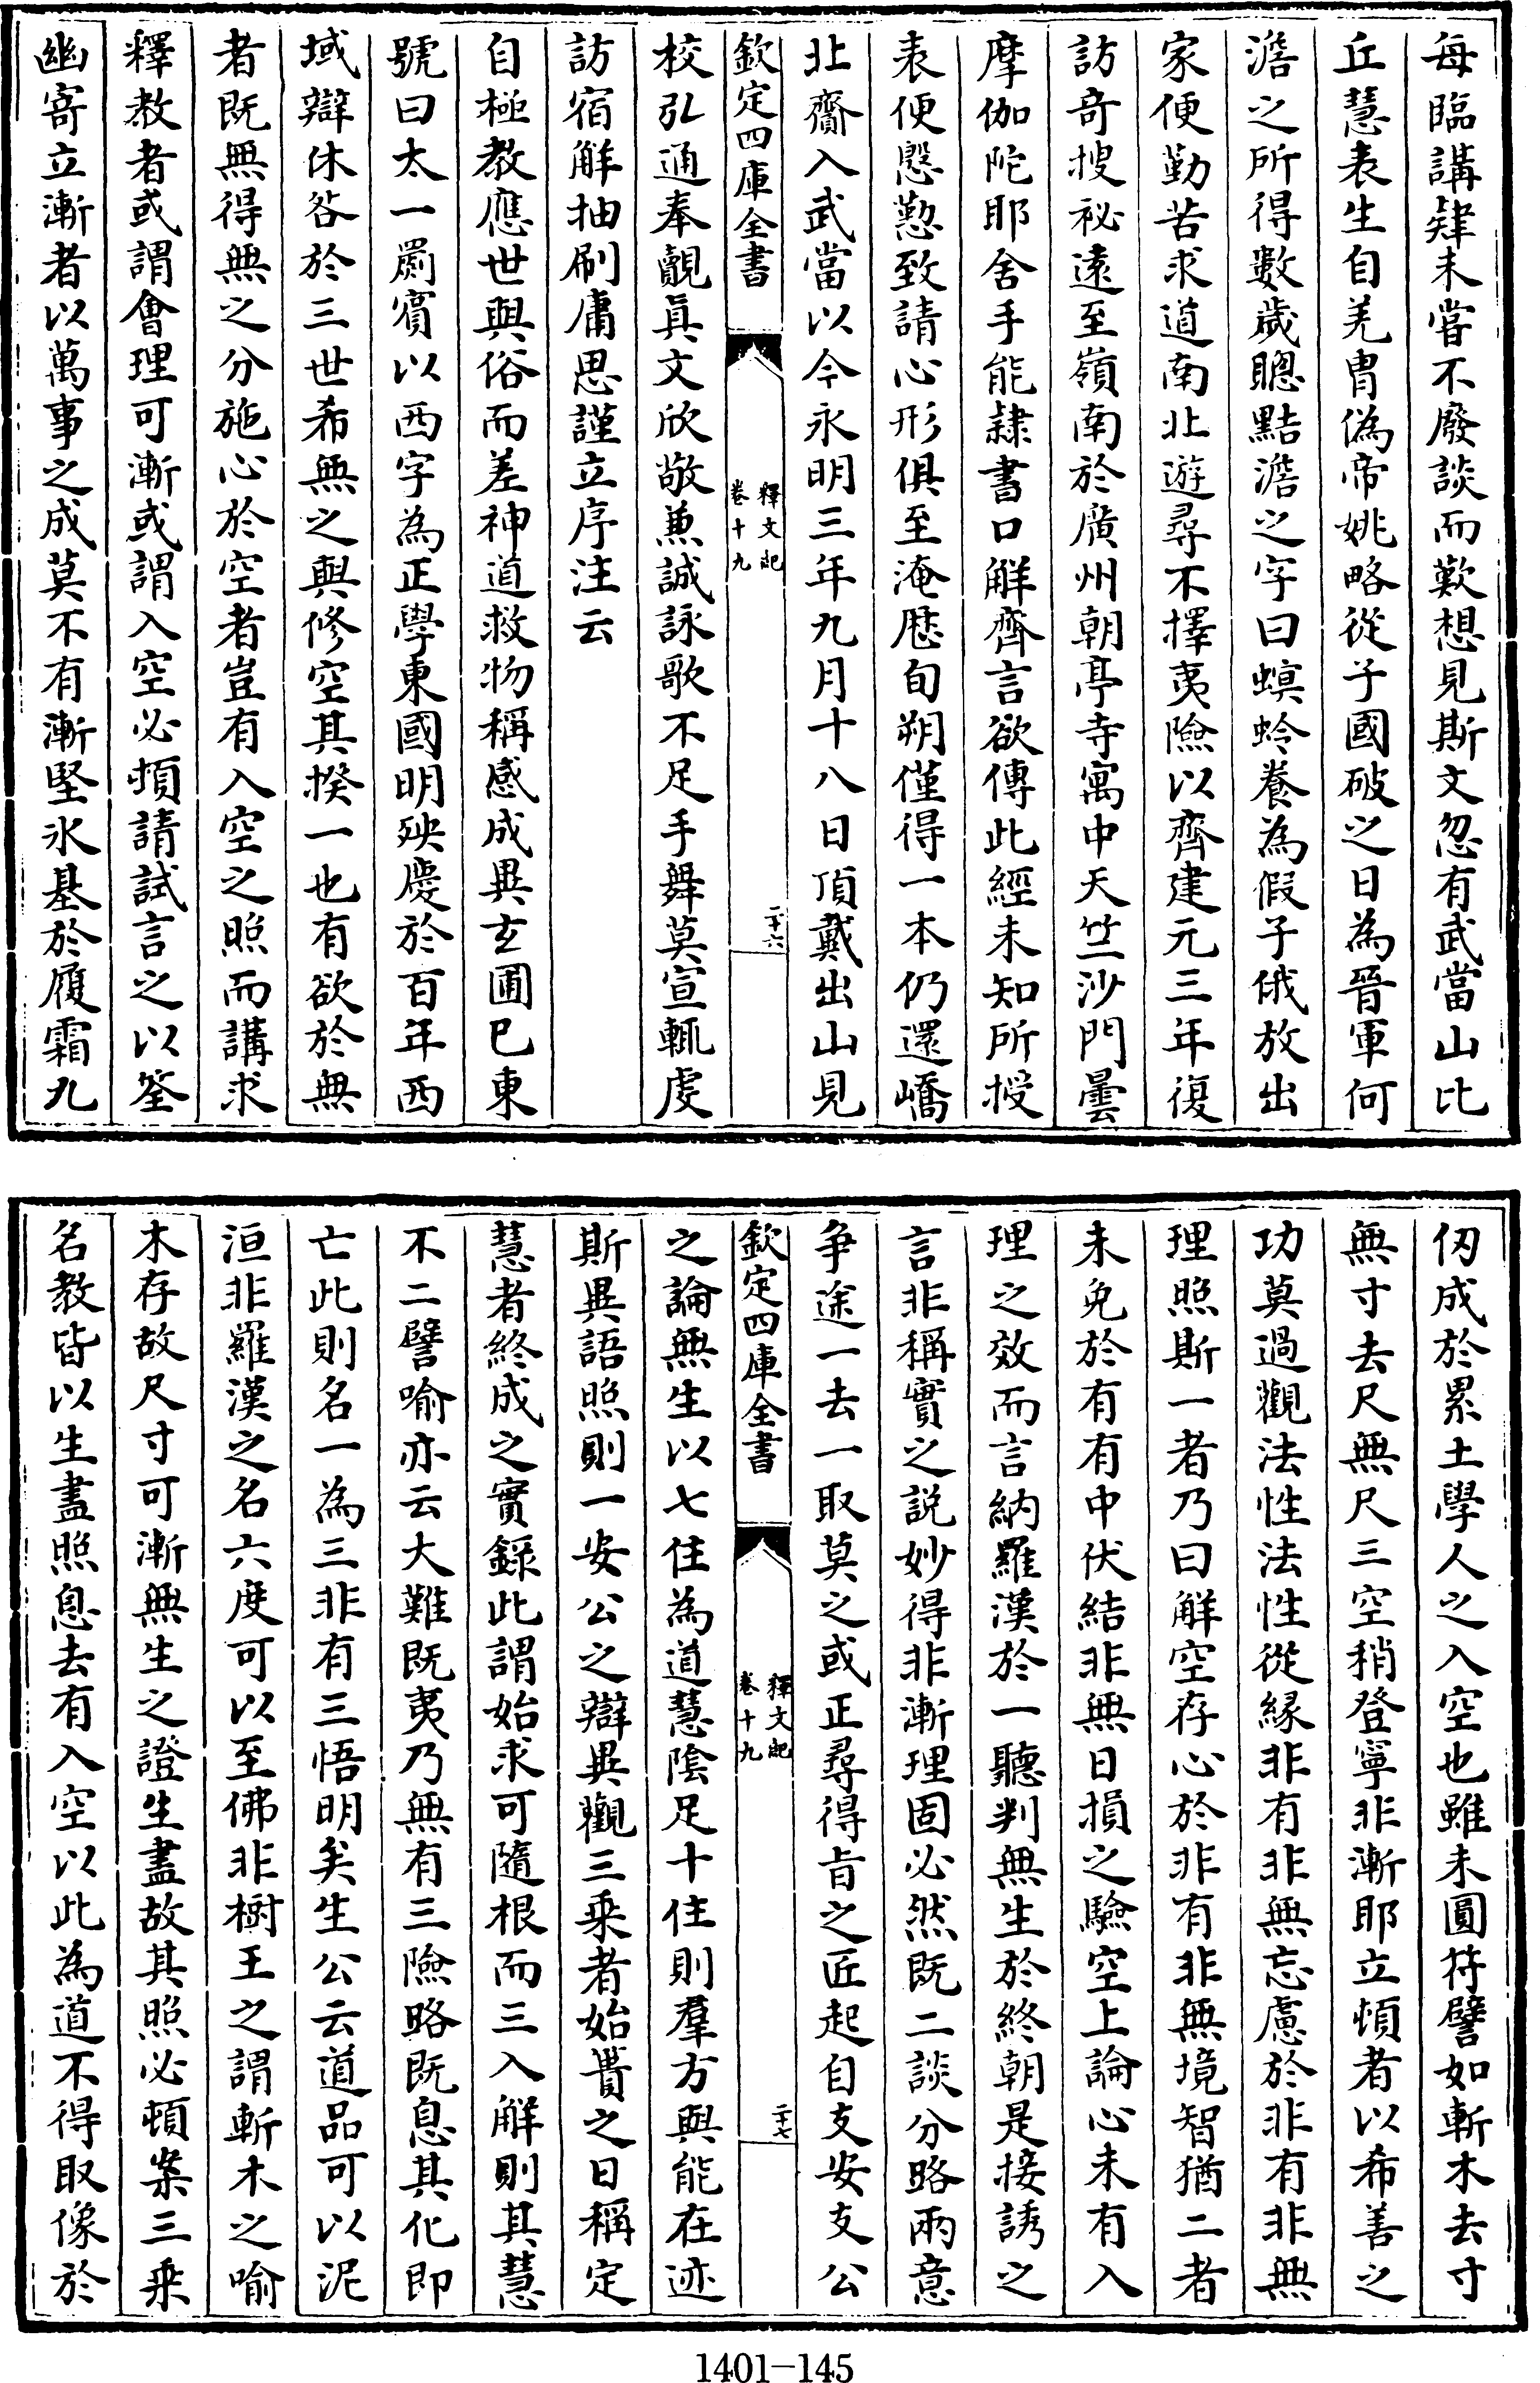 每臨講肄未嘗不廢談而歎想見斯文忽有武當山比
丘慧表生自羌胄偽帝姚略從子國破之日為晉軍何
澹之所得數歲聰黠澹之字曰螟蛉養為假子俄放出
家便勤苦求道南北遊尋不擇夷險以齊建元三年復
訪奇搜秘遠至嶺南於廣州朝亭寺寓中天竺沙門曇
摩伽陀耶舍手能隸書口解齊言欲傳此經未知所授
表便慇懃致請心形俱至淹歷旬朔僅得一本仍還嶠
北齎入武當以今永明三年九月十八日頂戴出山見
欽定四庫全書
釋文紀
卷十九
二十六
校弘通奉覿真文欣敬兼誠詠歌不足手舞莫宣輒虔
訪宿解抽刷庸思謹立序注云
自極教應世與俗而差神道救物稱感成異玄圃已東
號曰太一罽賓以西字為正學東國明殃慶於百年西
域辯休咎於三世希無之與修空其揆一也有欲於無
者既無得無之分施心於空者豈有入空之照而講求
釋教者或謂會理可漸或謂入空必頓請試言之以筌
幽寄立漸者以萬事之成莫不有漸堅冰基於履霜九
仞成於累土學人之入空也雖未圓符譬如斬木去寸
無寸去尺無尺三空稍登寧非漸耶立頓者以希善之
功莫過觀法性法性從緣非有非無忘慮於非有非無
理照斯一者乃曰解空存心於非有非無境智猶二者
未免於有有中伏結非無日損之驗空上論心未有入
理之效而言納羅漢於一聽判無生於終朝是接誘之
言非稱實之説妙得非漸理固必然既二談分路兩意
爭途一去一取莫之或正尋得旨之匠起自支安支公
欽定四庫全書
釋文紀
卷十九
二十七
之論無生以七住為道慧陰足十住則羣方與能在迹
斯異語照則一安公之辯異觀三乘者始簣之日稱定
慧者終成之實錄此謂始求可隨根而三入解則其慧
不二譬喻亦云大難既夷乃無有三險路既息其化即
亡此則名一為三非有三悟明矣生公云道品可以泥
洹非羅漢之名六度可以至佛非樹王之謂斬木之喻
木存故尺寸可漸無生之證生盡故其照必頓案三乘
名教皆以生盡照息去有入空以此為道不得取像於
1401-145